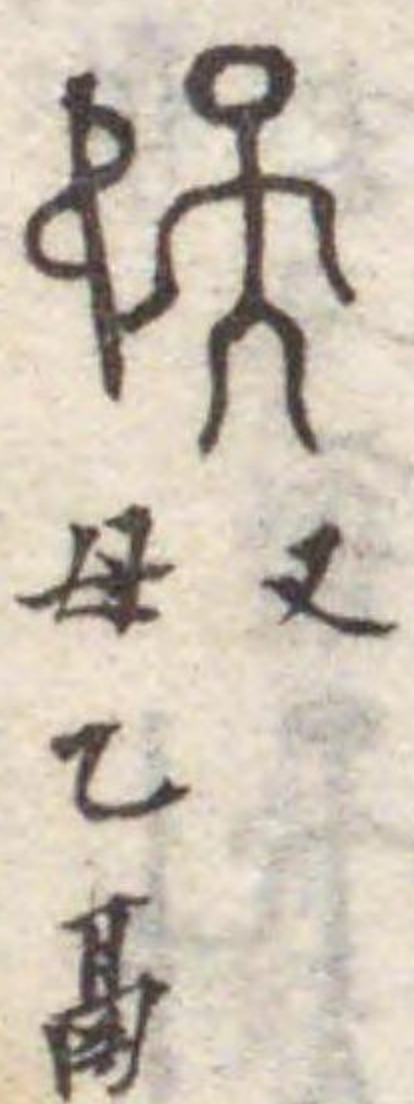 又
母乙鬲